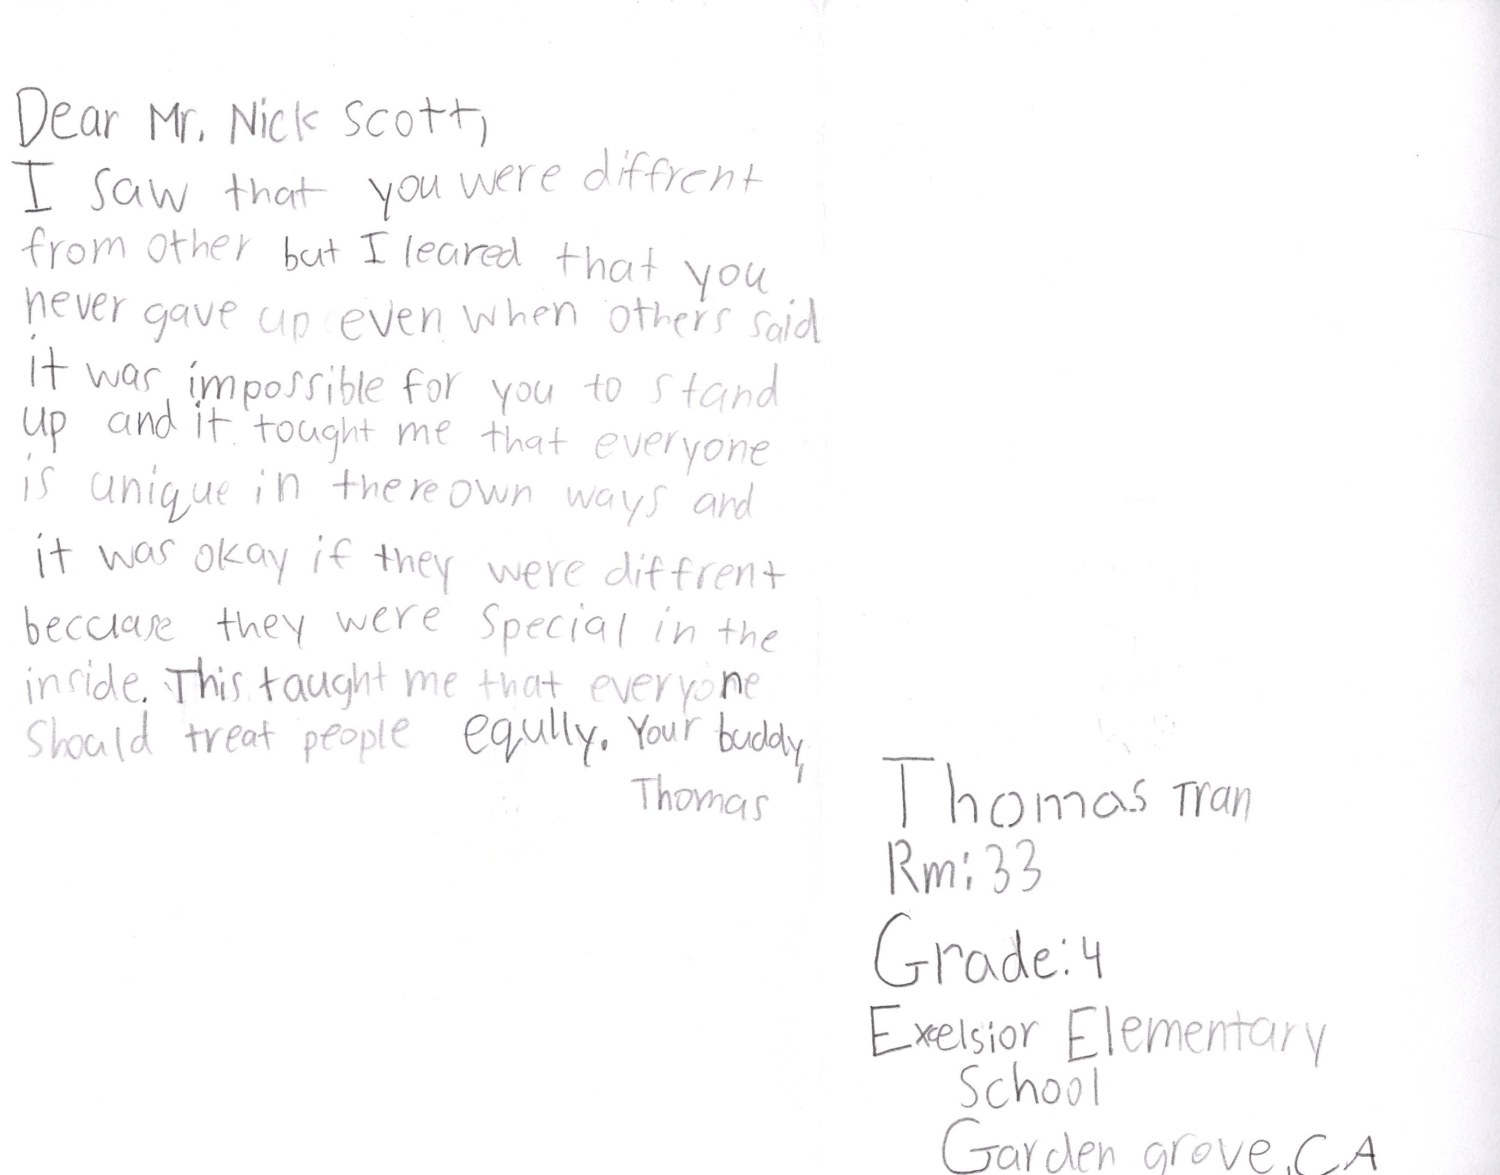 Dear Mr. Nick Scott,
I saw that you were diffrent
from other but I leared that you
never gave up even when others said
it was impossible for you to stand
up and it tought me that everyone
is unique in there own ways and
it was okay if they were diffrent
beccuase they were special in the
inside. This taught me that everyone
should treat people eqully. Your buddy,
Thomas
Thomas Tran
Rm: 33
Grade: 4
Excelsior Elementary
School
Garden grove, CA